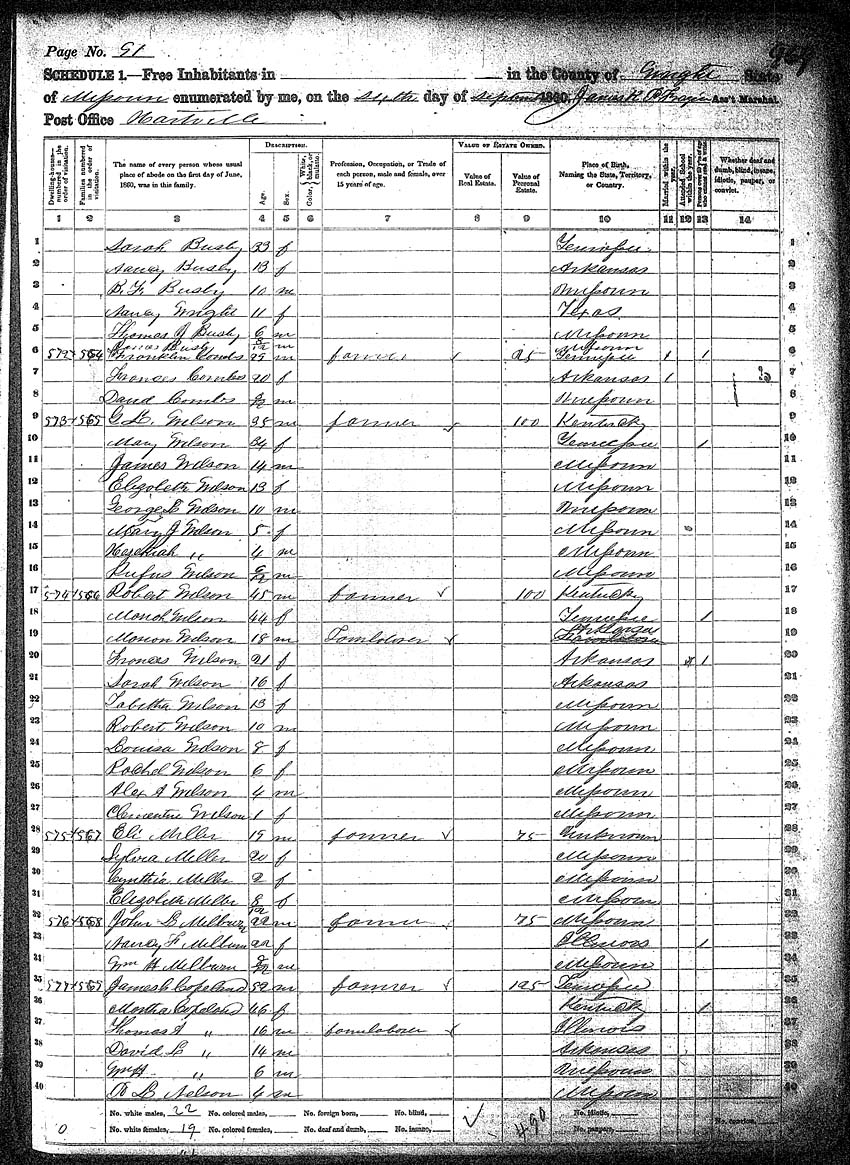 Page No. 91
SCHEDULE 1.—Free Inhabitants in in the County of Wright State
of Missouri enumerated by me, on the sixth day of Septem 1860. James R. Ass't Marshal.
Post Office Hartville
Dwelling-houses—numbered in the order of visitation.
Families numbered in the order of visitation.
The name of every person whose usual place of abode on the first day of June, 1860, was in this family.
DESCRIPTION.
Age.
Sex.
Color, White, black, or mulatto.
Profession, Occupation, or Trade of each person, male and female, over 15 years of age.
VALUE OF ESTATE OWNED.
Value of Real Estate.
Value of Personal Estate.
Place of Birth, Naming the State, Territory, or Country.
Married within the year.
Attended School within the year.
Whether deaf and dumb, blind, insane, idiotic, pauper, or convict.
1 2 3 4 5 6 7 8 9 10 11 12 13 14
1 Sarah Busby 33 f Tennessee 1
2 Nancy Busby 13 f Arkansas 2
3 B. F. Busby 10 m Missouri 3
4 Nancy Wright 11 f Texas 4
5 Thomas J Busby 6 m Missouri 5
Busby m Missouri
6 572 564 Franklin Combs 22 m farmer 25 Tennessee 1 1 6
7 Frances Combs 20 f Arkansas 1 7
8 David Combs m Missouri 8
9 573 565 G. L. Wilson 35 m farmer 100 Kentucky 9
10 Mary Wilson 34 f Tennessee 1 10
11 James Wilson 14 m Missouri 11
12 Elizabeth Wilson 13 f Missouri 12
13 George E Wilson 10 m Missouri 13
14 Mary J Wilson 5 f Missouri 14
15 Hezekiah " 4 m Missouri 15
16 Rufus Wilson m Missouri 16
17 574 566 Robert Wilson 45 m farmer 100 Kentucky 17
18 Wilson 44 f Tennessee 1 18
19 Marion Wilson 18 m Farm laborer Arkansas 19
20 Frances Wilson 21 f Arkansas 1 20
21 Sarah Wilson 16 f Arkansas 21
22 Tabitha Wilson 13 f Missouri 22
23 Robert Wilson 10 m Missouri 23
24 Louisa Wilson 8 f Missouri 24
25 Rachel Wilson 6 f Missouri 25
26 Alex A Wilson 4 m Missouri 26
27 Clementine Wilson 1 f Missouri 27
28 575 567 Eli Miller 19 m farmer 75 Unknown 28
29 Sylvia Miller 20 f Missouri 29
30 Cynthia Miller 2 f Missouri 30
31 Elizabeth Miller 8/12 f Missouri 31
32 576 568 John L Milburn 22 m farmer 75 Missouri 32
33 Nancy F Milburn 22 f Illinois 1 33
34 Wm H Milburn m Missouri 34
35 577 569 James C Copeland 52 m farmer 125 Tennessee 35
36 Martha Copeland 46 f Kentucky 1 36
37 Thomas A " 16 m farm laborer Illinois 37
38 David L " 14 m Arkansas 38
39 Wm H " 6 m Missouri 39
40 B L Nelson 4 m Missouri 40
No. white males, 22 No. colored males, No. foreign born, No. blind, No. idiotic,
No. white females, 19 No. colored females, No. deaf and dumb, No. insane, 490 No. paupers, No. convicts,
0